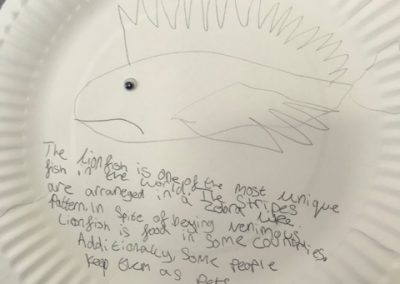 The lionfish is one of the most unique
fish in the world. The stripes
are arranged in a zebra like
pattern. In spite of beying venimous,
Lionfish is food in some countries.
Additionally, some people
keep them as pets